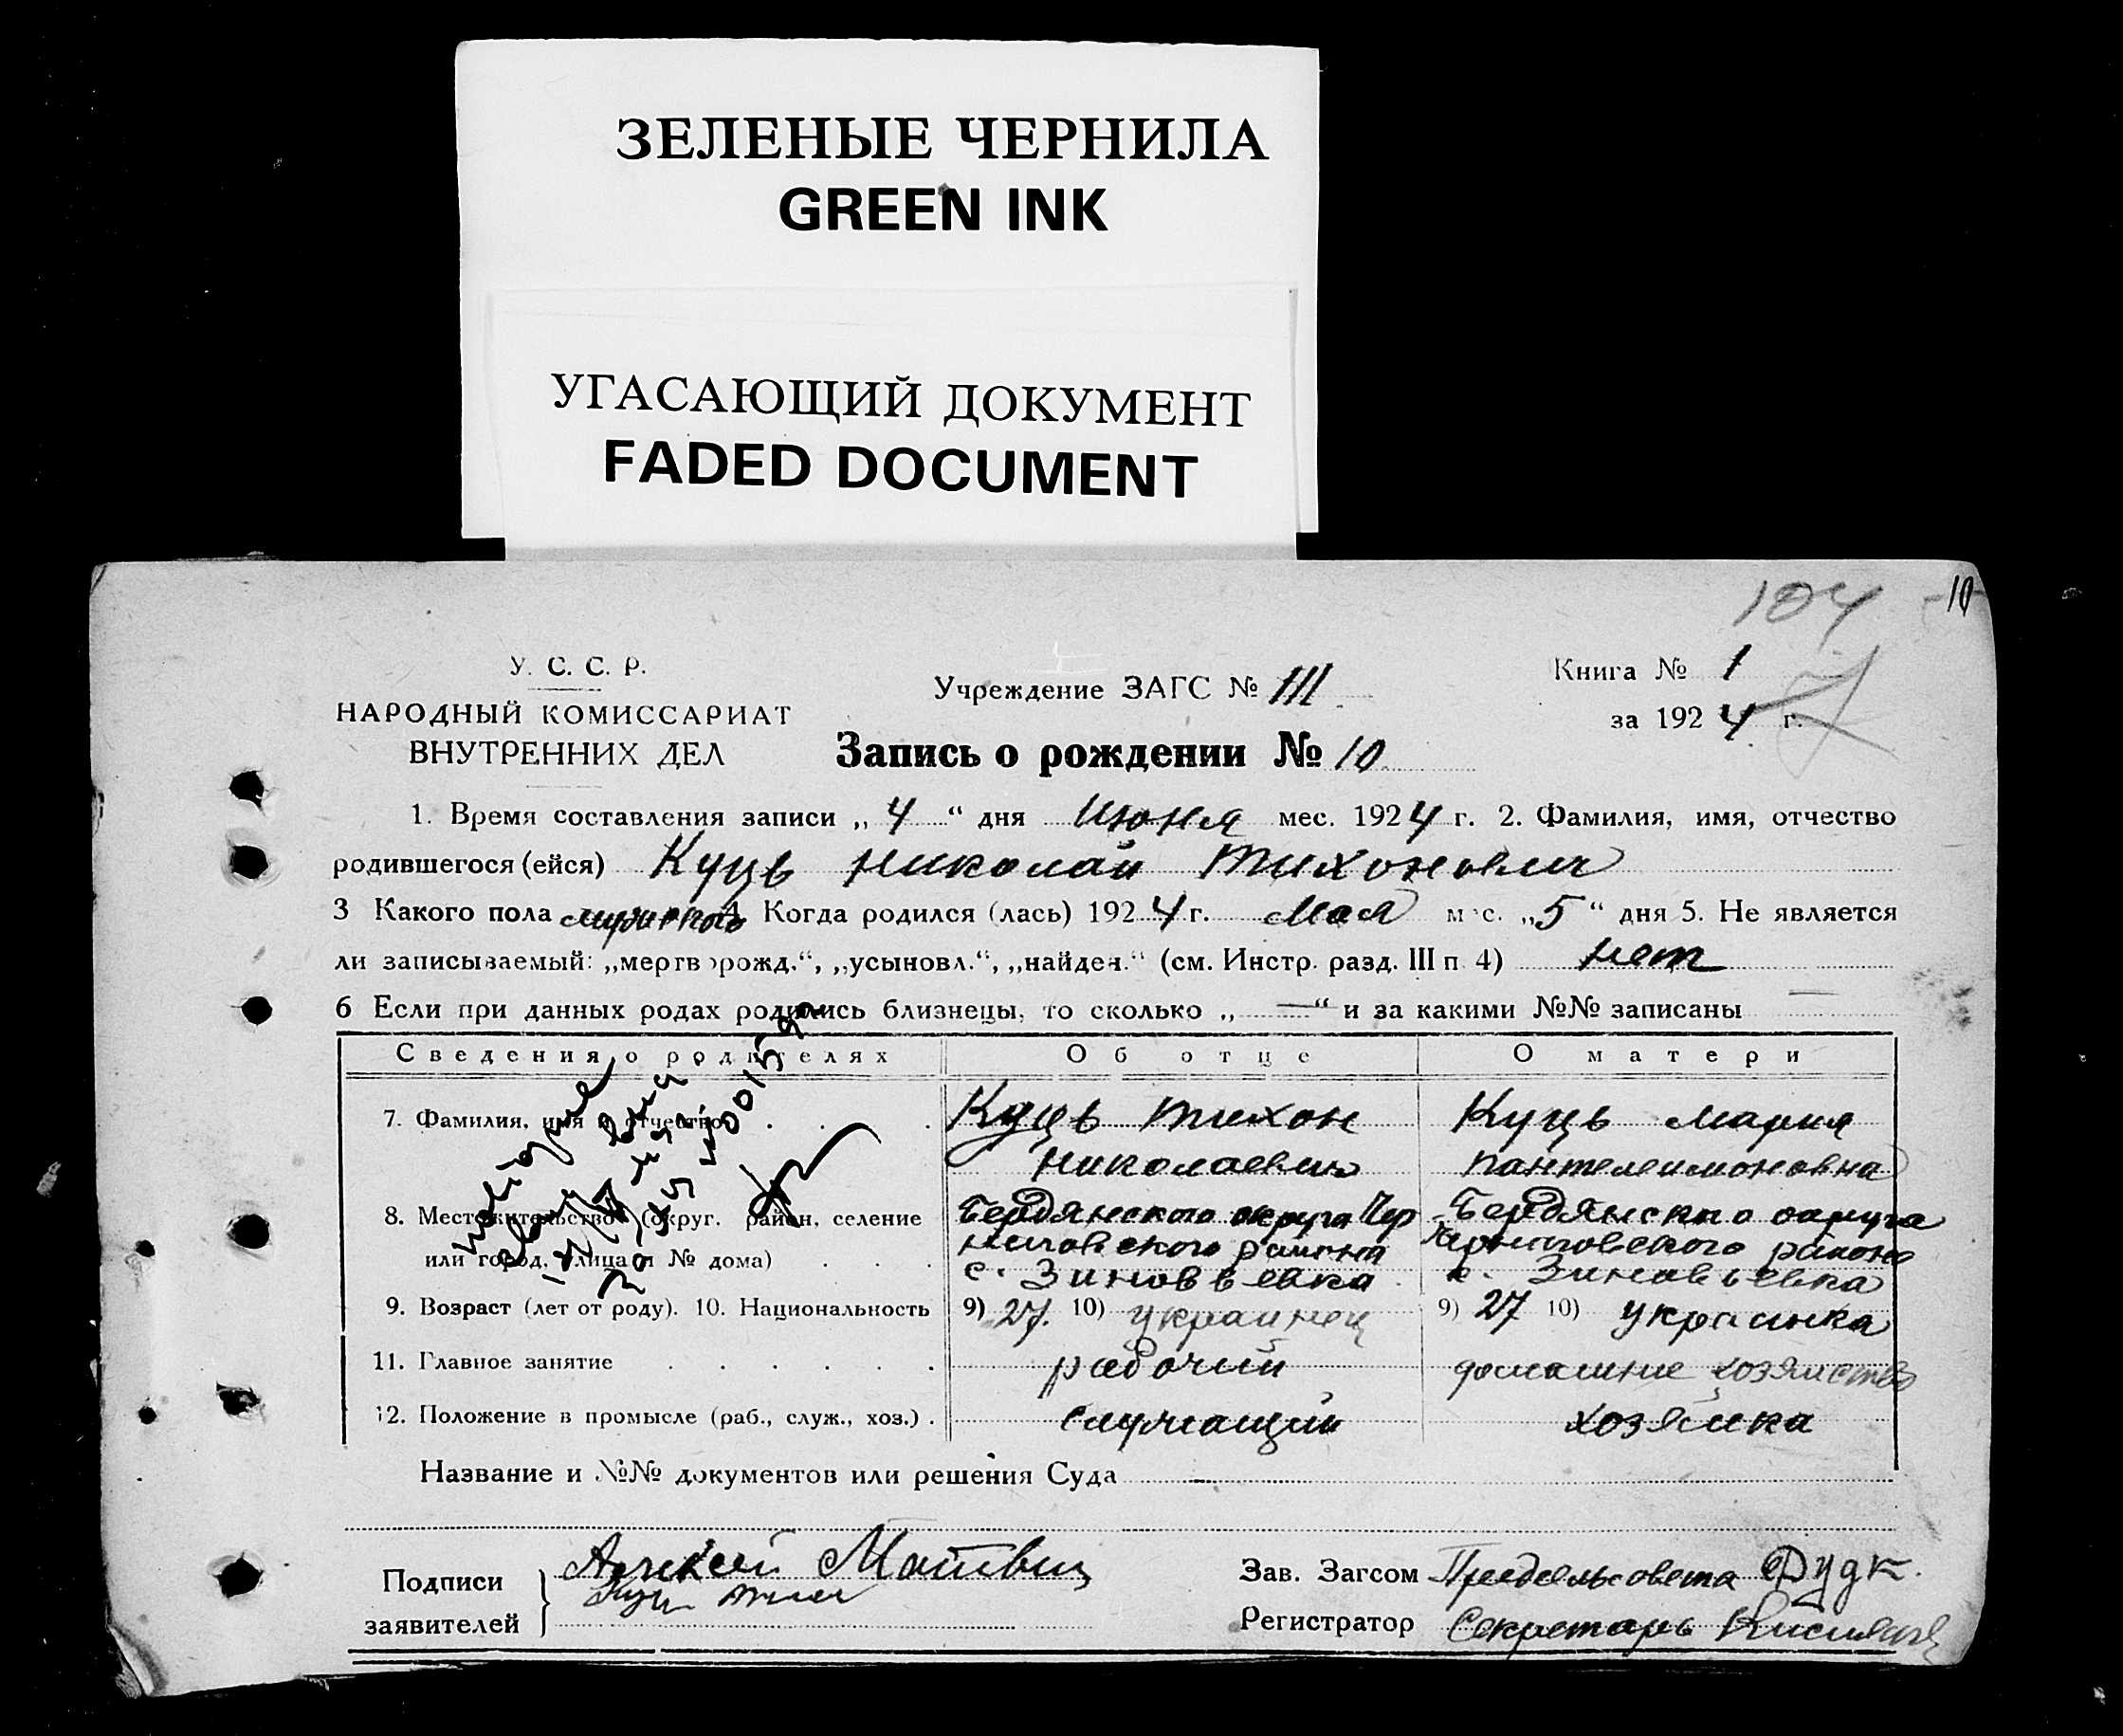 ЗЕЛЕНЫЕ ЧЕРНИЛА
GREEN INK
УГАСАЮЩИЙ ДОКУМЕНТ
FADED DOCUMENT
104
10
У. С. С. Р.
НАРОДНЫЙ КОМИССАРИАТ
ВНУТРЕННИХ ДЕЛ
Учреждение ЗАГС № III
Книга № 1
за 1924 г.
Запись о рождении № 10
1. Время составления записи „4“ дня Июня мес. 1924 г. 2. Фамилия, имя, отчество
родившегося (ейся) Куць Николай Тихонович
3 Какого пола мужского 4 Когда родился (лась) 1924 г. Мая мес. „5“ дня 5. Не является
ли записываемый: „мертворожд.“, „усыновл.“, „найден.“ (см. Инстр. разд. III п 4) нет
6 Если при данных родах родились близнецы, то сколько „—“ и за какими №№ записаны —
Сведения о родителях Об отце О матери
7. Фамилия, имя и отчество Куць Тихон Куць Мария
Николаевич Пантелеимоновна
8. Местожительство (округ. район, селение Бердянского округа Чер Бердянского округа
или город, улица и № дома) ниговского района Черниговского района
с. Зиновьевка с. Зиновьевка
9. Возраст (лет от роду). 10. Национальность 9) 27. 10) украинец 9) 27 10) украинка
11. Главное занятие рабочий домашние хозяйство
12. Положение в промысле (раб., служ., хоз.) служащий хозяйка
Название и №№ документов или решения Суда —
Подписи
заявителей
Алексей
Куц
Зав. Загсом Предсельсовета Дудк.
Регистратор Секретарь